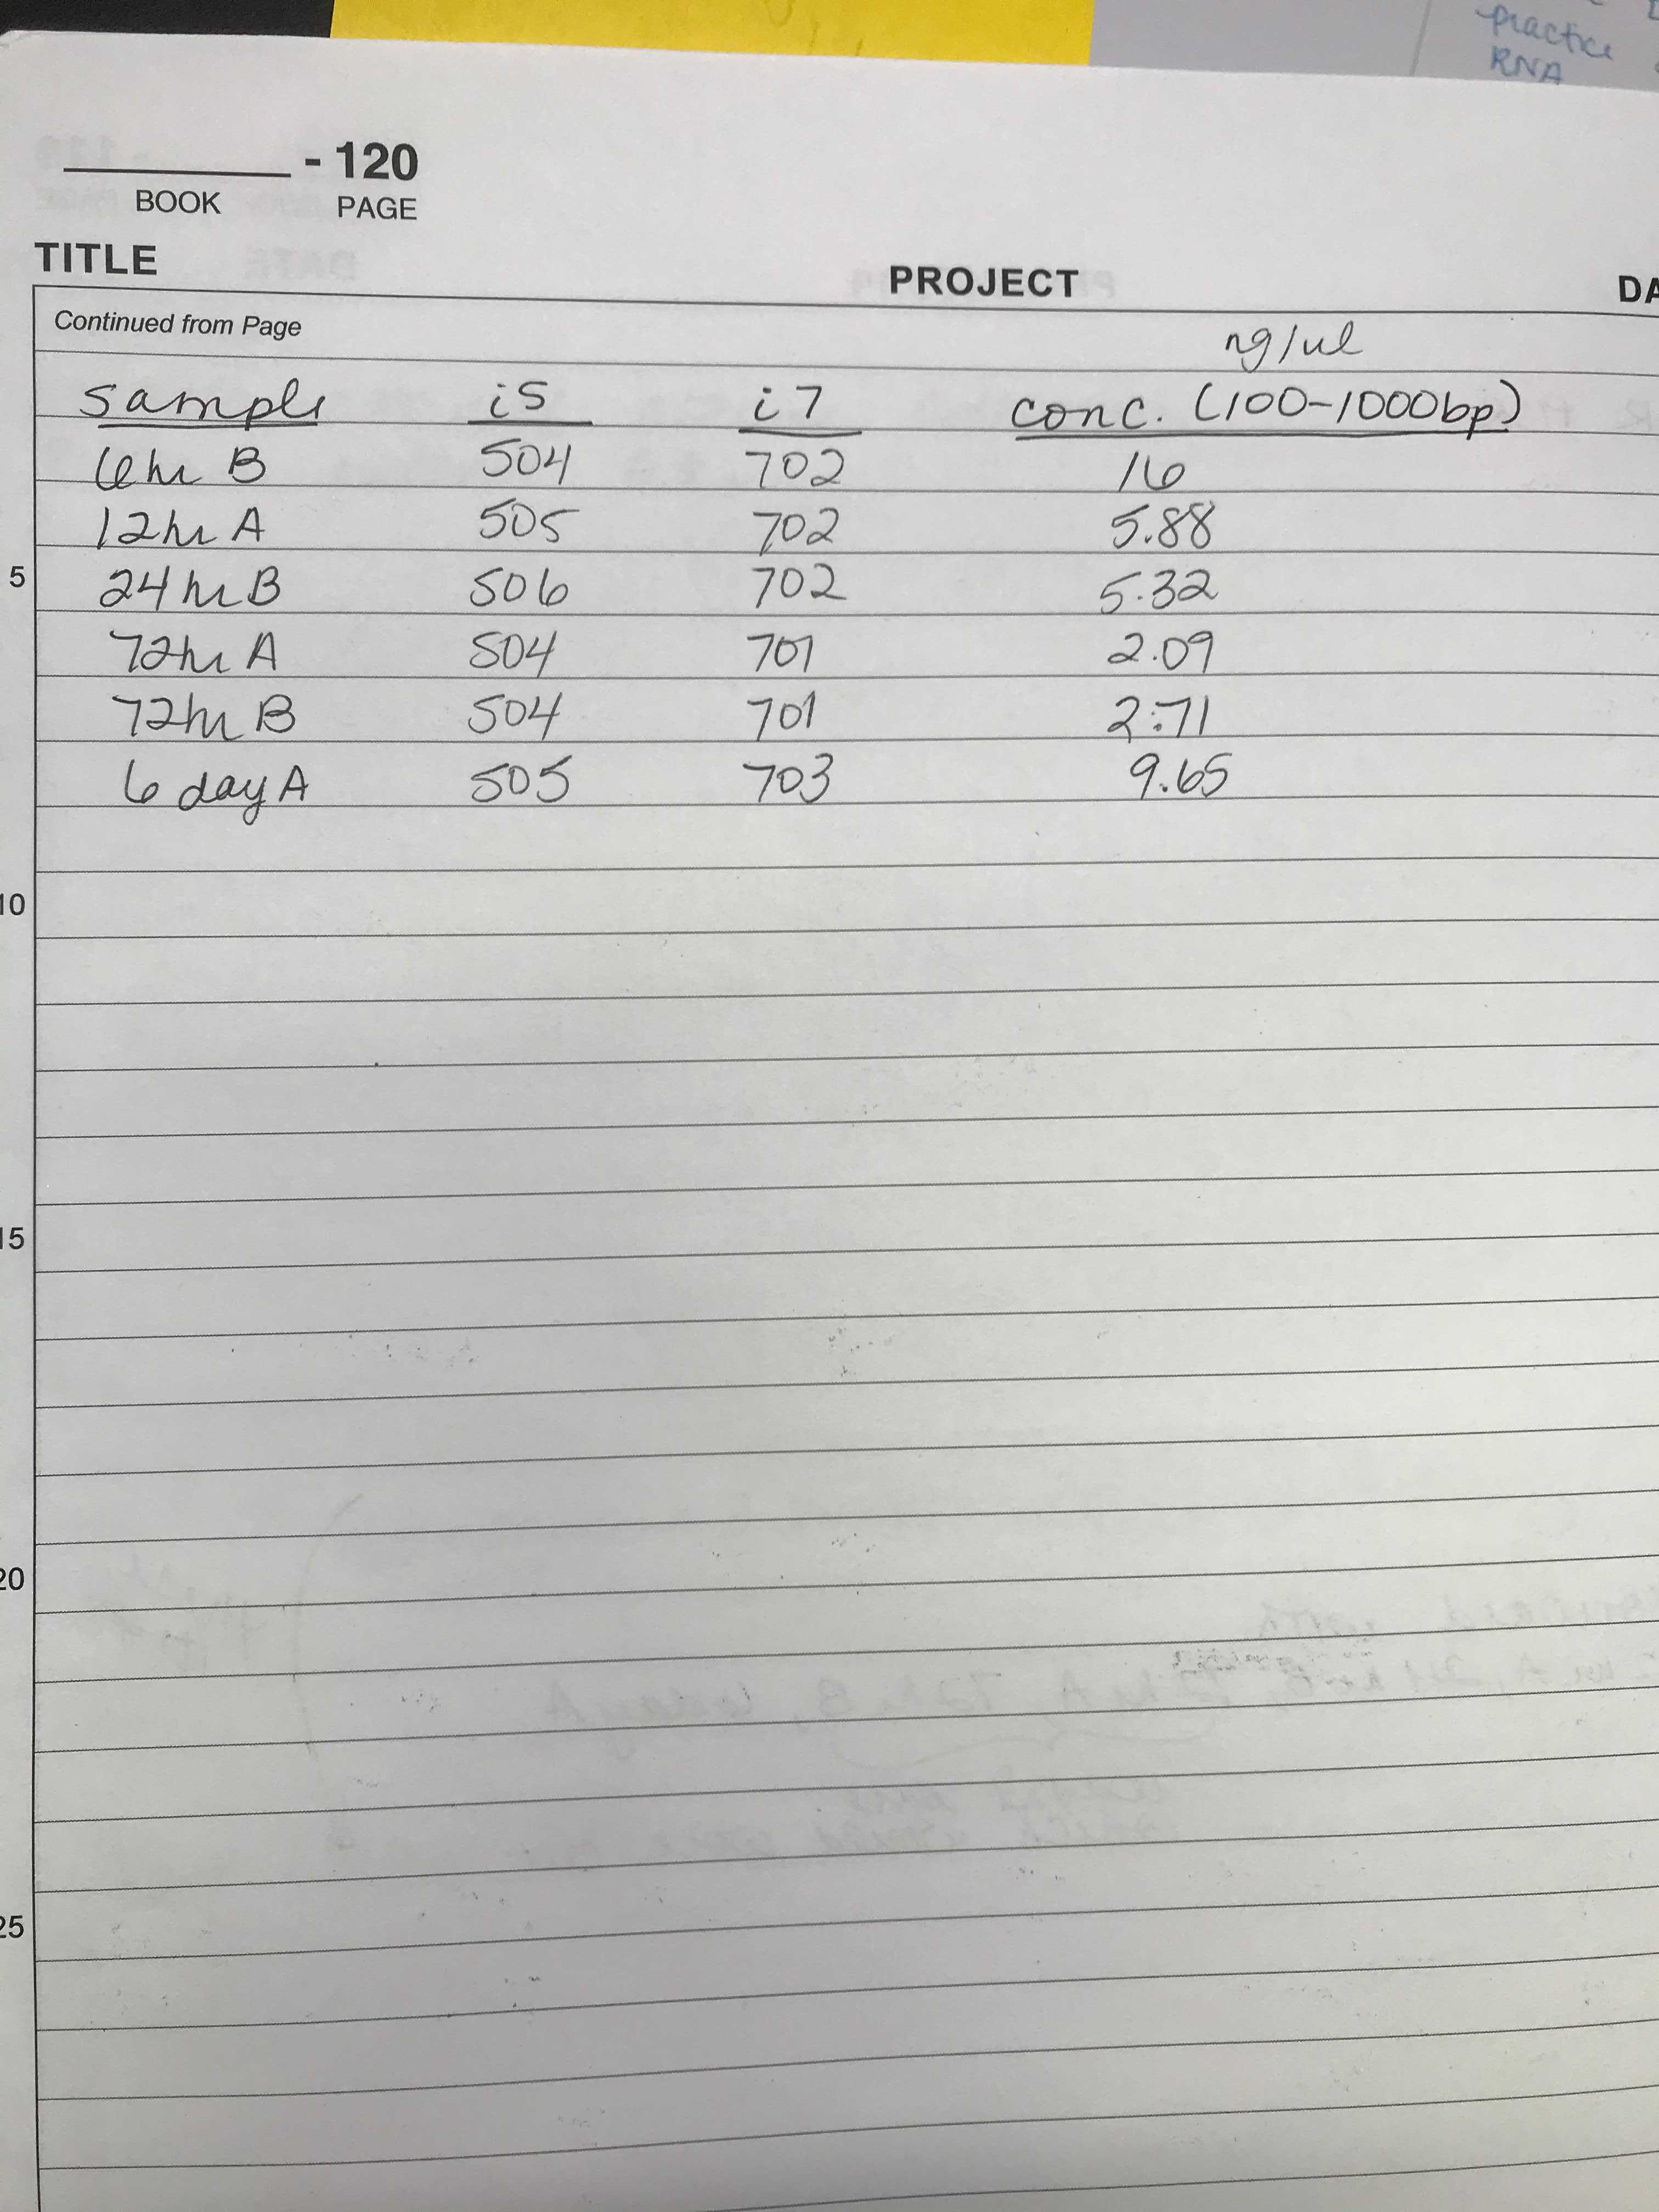 practice
RNA
- 120
BOOK PAGE
TITLE PROJECT DA
Continued from Page
ng/ul
sample i5 i7 conc. (100-1000bp)
6hr B 504 702 16
12hr A 505 702 5.88
5 24hr B 506 702 5.32
72hr A 504 701 2.09
72hr B 504 701 2.71
6 day A 505 703 9.65
10
15
20
25